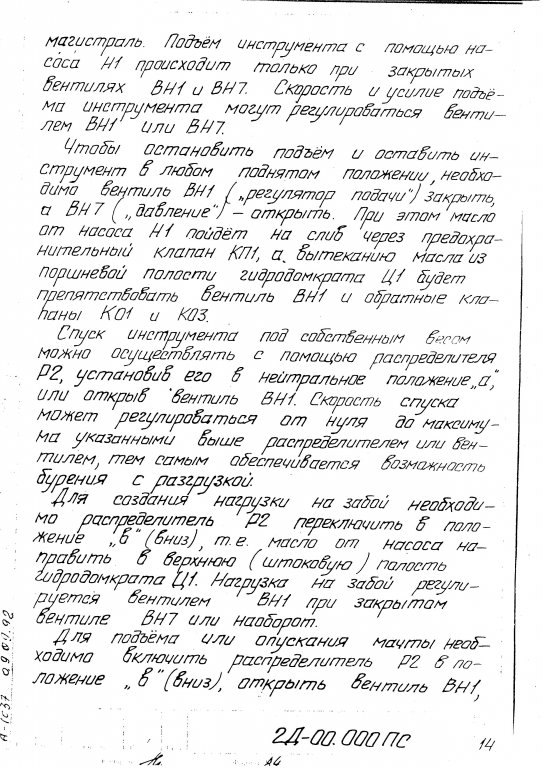 магистраль. Подъём инструмента с помощью на-
соса Н1 происходит только при закрытых
вентилях ВН1 и ВН7. Скорость и усилие подъё-
ма инструмента могут регулироваться венти-
лем ВН1 или ВН7.
Чтобы остановить подъём и оставить ин-
струмент в любом поднятом положении, необхо-
димо вентиль ВН1 („регулятор подачи") закрыть,
а ВН7 („давление") – открыть. При этом масло
от насоса Н1 пойдёт на слив через предохра-
нительный клапан КП1, а вытеканию масла из
поршневой полости гидродомкрата Ц1 будет
препятствовать вентиль ВН1 и обратные кла-
паны КО1 и КО3.
Спуск инструмента под собственным весом
можно осуществлять с помощью распределителя
Р2, установив его в нейтральное положение „а",
или открыв вентиль ВН1. Скорость спуска
может регулироваться от нуля до максиму-
ма указанными выше распределителем или вен-
тилем, тем самым обеспечивается возможность
бурения с разгрузкой.
Для создания нагрузки на забой необходи-
мо распределитель Р2 переключить в поло-
жение „в" (вниз), т.е. масло от насоса на-
править в верхнюю (штоковую) полость
гидродомкрата Ц1. Нагрузка на забой регули-
руется вентилем ВН1 при закрытом
вентиле ВН7 или наоборот.
Для подъёма или опускания мачты необ-
ходимо включить распределитель Р2 в по-
ложение „в" (вниз), открыть вентиль ВН1,
2Д-00.000 ПС
14
А4